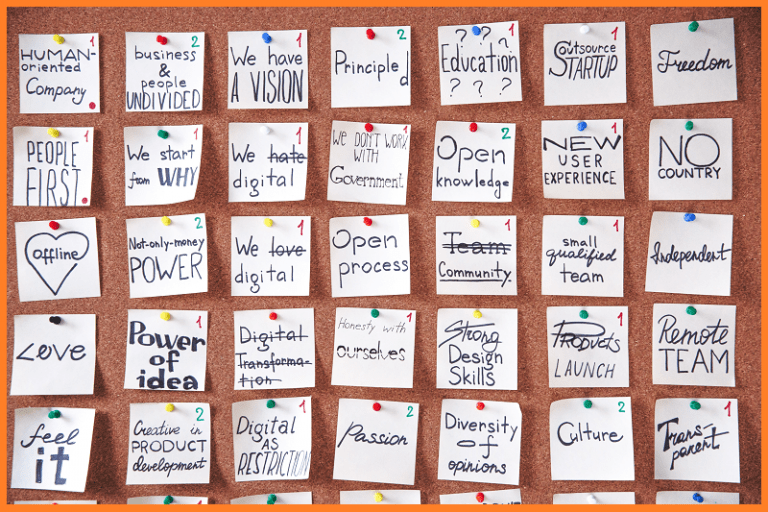 1
HUMAN-
oriented
Company
2
business
&
people
UNDIVIDED
1
We have
A VISION
2
Principle
d
1
? ? ?
Education
? ? ?
1
Outsource
STARTUP
Freedom
1
PEOPLE
FIRST.
1
We start
from WHY
1
We hate
digital
1
WE DON'T WORK
WITH
Government
2
Open
knowledge
1
NEW
USER
EXPERIENCE
NO
COUNTRY
offline
2
Not-only-money
POWER
1
We love
digital
Open
process
1
Team
Community
1
small
qualified
team
Independent
Love
1
Power
of
idea
Digital
Transforma-
tion
1
Honesty with
ourselves
Strong
Design
Skills
1
Products
LAUNCH
Remote
TEAM
feel
it
2
Creative in
PRODUCT
development
1
Digital
AS
RESTRICTION
2
Passion
Diversity
of
opinions
2
Culture
1
Trans-
parent